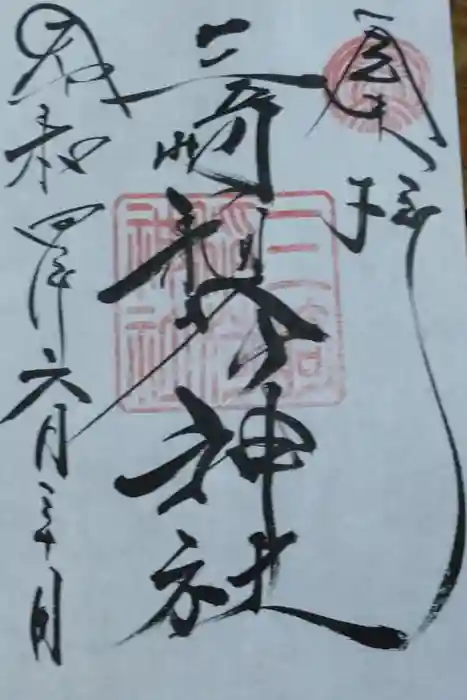 奉拝
三崎稲荷神社
令和四年六月三十日